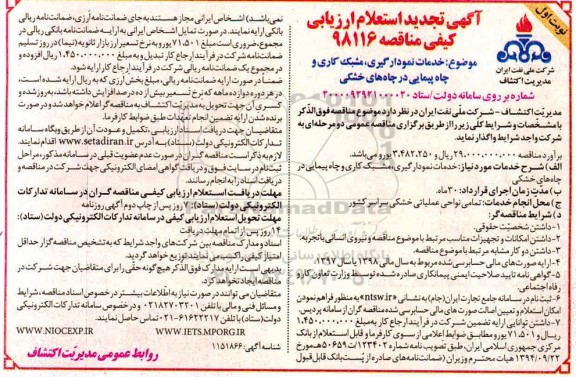 نوبت اول
آگهی تجدید استعلام ارزیابی
کیفی مناقصه ۹۸۱۱۶
موضوع: خدمات نمودارگیری، مشبک کاری و
چاه پیمایی در چاه‌های خشکی
شرکت ملی نفت ایران
مدیریت اکتشاف
شماره بر روی سامانه دولت/ستاد:
مدیریت اکتشاف - شرکت ملی نفت ایران در نظر دارد موضوع مناقصه فوق‌الذکر
با مشخصات و شرایط کلی زیر را از طریق برگزاری مناقصه عمومی دو مرحله‌ای به
شرکت واجد شرایط واگذار نماید.
برآورد مناقصه ۲۹,۰۰۰,۰۰۰,۰۰۰ ریال و ۳,۴۸۲,۲۵۰ یورو می‌باشد.
الف) شرح خدمات مورد نیاز: خدمات نمودارگیری، مشبک کاری و چاه پیمایی در
چاه‌های خشکی
ب) مدت زمان اجرای قرارداد: ۳۰ ماه.
ج) محل انجام خدمات: تمامی نواحی عملیاتی خشکی سراسر کشور
د) شرایط مناقصه‌گر:
۱- داشتن شخصیت حقوقی.
۲- داشتن امکانات و تجهیزات مناسب مرتبط با موضوع مناقصه و نیروی انسانی با تجربه.
۳- داشتن دو کار مشابه مرتبط با موضوع مناقصه.
۴- ارایه صورت‌های مالی حسابرسی شده مربوط به سال مالی ۱۳۹۸ یا سال ۱۳۹۷.
۵- گواهی نامه تایید صلاحیت ایمنی پیمانکاری صادره شده توسط وزارت تعاون کار و
رفاه اجتماعی.
۶- ثبت نام در سامانه جامع تجارت ایران (جام) به نشانی «ntsw.ir» به منظور فراهم نمودن
امکان استعلام و تعیین اصالت صورت های مالی حسابرسی شده مناقصه گران از سامانه پردیس.
۷- داشتن توانایی ارایه تضمین شرکت در فرآیند ارجاع کار به مبلغ ۱,۴۵۰,۰۰۰,۰۰۰
ریال و ۷۱,۵۰۱ یورو مطابق ضوابط اعلامی از سوی کارفرما و قابل استعلام از بانک
مرکزی جمهوری اسلامی ایران، طبق تصویب نامه شماره ۱۲۳۴۰۲/ت ۵۰۶۵۹ هـ مورخ
۱۳۹۴/۰۹/۲۲ هیات محترم وزیران (ضمانت‌نامه‌های صادره از پست بانک قابل قبول
نمی‌باشد) اشخاص ایرانی مجاز هستند به جای ضمانت‌نامه ارزی، ضمانت‌نامه ریالی
بانکی ارایه نمایند. در صورت تمایل اشخاص ایرانی به ارایه ضمانت‌نامه بانکی ریالی در
مجموع، ضروری است مبلغ ۷۱,۵۰۱ یورو به نرخ تسعیر ارز بازار ثانویه (نیما) در روز تسلیم
ضمانت‌نامه شرکت در فرآیند ارجاع کار تبدیل و به مبلغ ۱,۴۵۰,۰۰۰,۰۰۰ ریال افزوده و
در مجموع یک ضمانت‌نامه ریالی شرکت در فرآیند ارجاع کار ارایه شود.
ضمناً در صورت ارایه ضمانت‌نامه ریالی، مبلغ بخش ارزی که به ریال ارایه شده است،
در هر دوره دوازده ماهه که نرخ تسعیر بیش از ده درصد افزایش داشته باشد، به روزشده و
کسری آن جهت تحویل به مدیریت اکتشاف به مناقصه گر اعلام خواهد شد و در صورت
برنده شدن ارایه تضمین انجام تعهدات طبق ضوابط کارفرما.
متقاضیان جهت دریافت اسناد ارزیابی، تکمیل و عودت آن از طریق وبگاه سامانه
تدارکات الکترونیکی دولت (ستاد) به آدرس www.setadiran.ir اقدام نمایند.
لازم به ذکر است مناقصه گران در صورت عدم عضویت قبلی در سامانه مذکور، مراحل
ثبت نام در سایت فوق و دریافت گواهی امضای الکترونیکی جهت شرکت در مناقصه و
دریافت اسناد را به انجام رسانند.
مهلت دریافت استعلام ارزیابی کیفی مناقصه گران در سامانه تدارکات
الکترونیکی دولت (ستاد): ۷ روز پس از چاپ دوم آگهی روزنامه
مهلت تحویل استعلام ارزیابی کیفی در سامانه تدارکات الکترونیکی دولت (ستاد):
۱۴ روز پس از اتمام مهلت دریافت
اسناد و مدارک مناقصه بین شرکت‌های واجد شرایط که به تشخیص مناقصه گزار حداقل
امتیاز کیفی را کسب می نمایند توزیع خواهد گردید.
بدیهی است ارایه مدارک فوق الذکر هیچ گونه حقی را برای متقاضیان جهت شرکت در
مناقصه ایجاد نخواهد کرد.
متقاضیان می توانند در صورت نیاز به اطلاعات بیشتر در خصوص اسناد مناقصه، شرایط
و مسائل فنی و مالی با تلفن ۰۲۱۸۲۷۰۳۲۰۱ و در خصوص سامانه تدارکات الکترونیکی
دولت (ستاد) با تلفن ۶۱۶۳۲۲۱۷-۰۲۱ تماس حاصل نمایند.
WWW.NIOCEXP.IR WWW.IETS.MPORG.IR
شناسه آگهی: ۱۱۵۱۸۶۶
روابط عمومی مدیریت اکتشاف